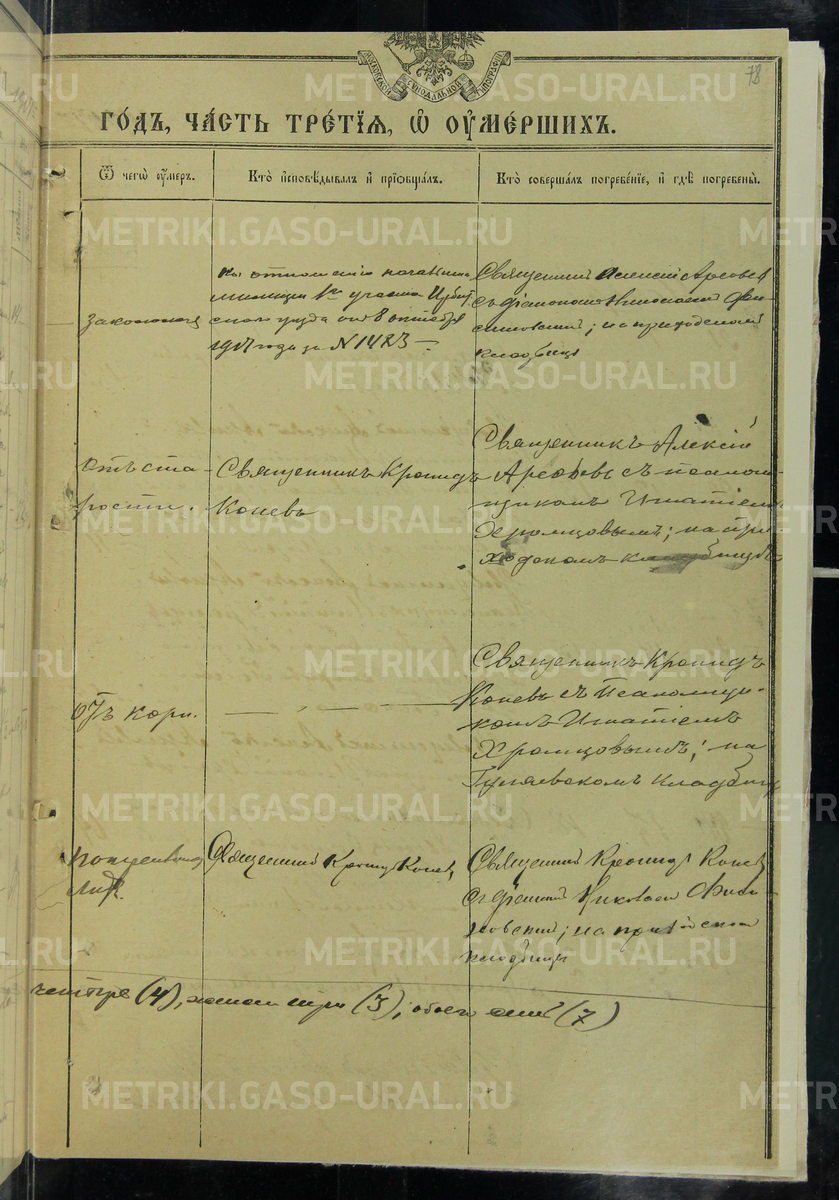 78
МОСКОВСКОЙ СѴНОДАЛЬНОЙ ТИПОГРАФІИ
ГО́ДЪ, ЧА́СТЬ ТРЕ́ТІѦ, Ѡ҆ ОУ҆МЕ́РШИХЪ.
Ѿ чегѡ̀ оу҆́меръ.
Кто̀ и҆сповѣ́дывалъ и҆ прїѡбща́лъ.
Кто̀ соверша́лъ погребе́нїе, и҆ гдѣ̀ погребены̀.
по отношенію начальника
милиціи 1го участка Ирбит
скаго уѣзда отъ 8 октября
1917 года за N 1423 —
Священникъ Алексій Арефьев
съ діакономъ Николаемъ
на приходскомъ
кладбищѣ
Отъ ста-
рости.
Священникъ Кронидъ
Коневъ
Священникъ Алексій
Арефьевъ съ псаломщ-
щикомъ Игнатіемъ
Хромцовымъ; на при-
ходскомъ кладбищѣ
Отъ кори.
Священникъ Кронидъ
Коневъ съ Псаломщи-
комъ Игнатіемъ
Хромцовымъ; на
кладбищѣ
Священникъ Кронидъ Коневъ
Священникъ Кронидъ Коневъ
съ діакономъ Николаемъ
на приходскомъ
кладбищѣ
четыре (4), женска три (3); обоего семь (7)
METRIKI.GASO-URAL.RU